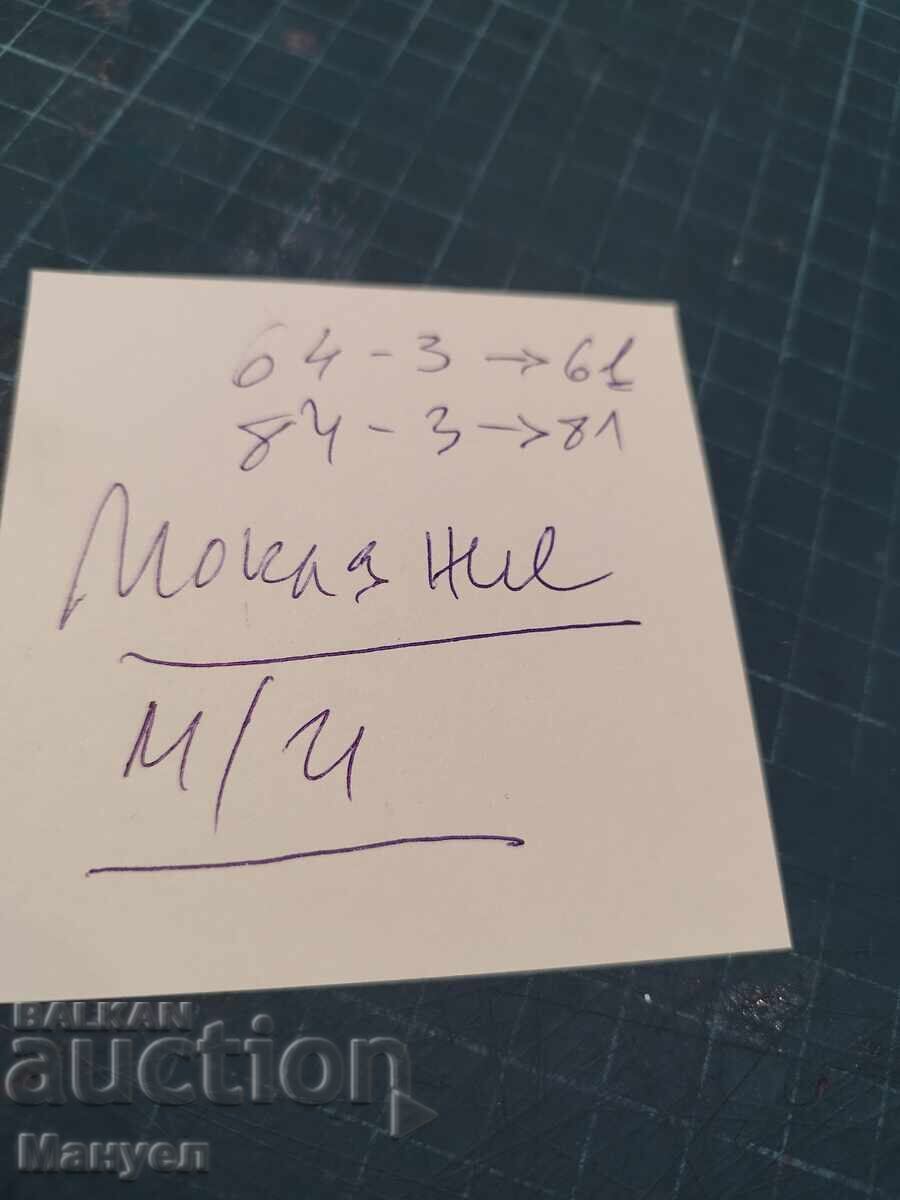 64 - 3 → 61
84 - 3 → 81
М/И
BALKAN
auction
Мануел